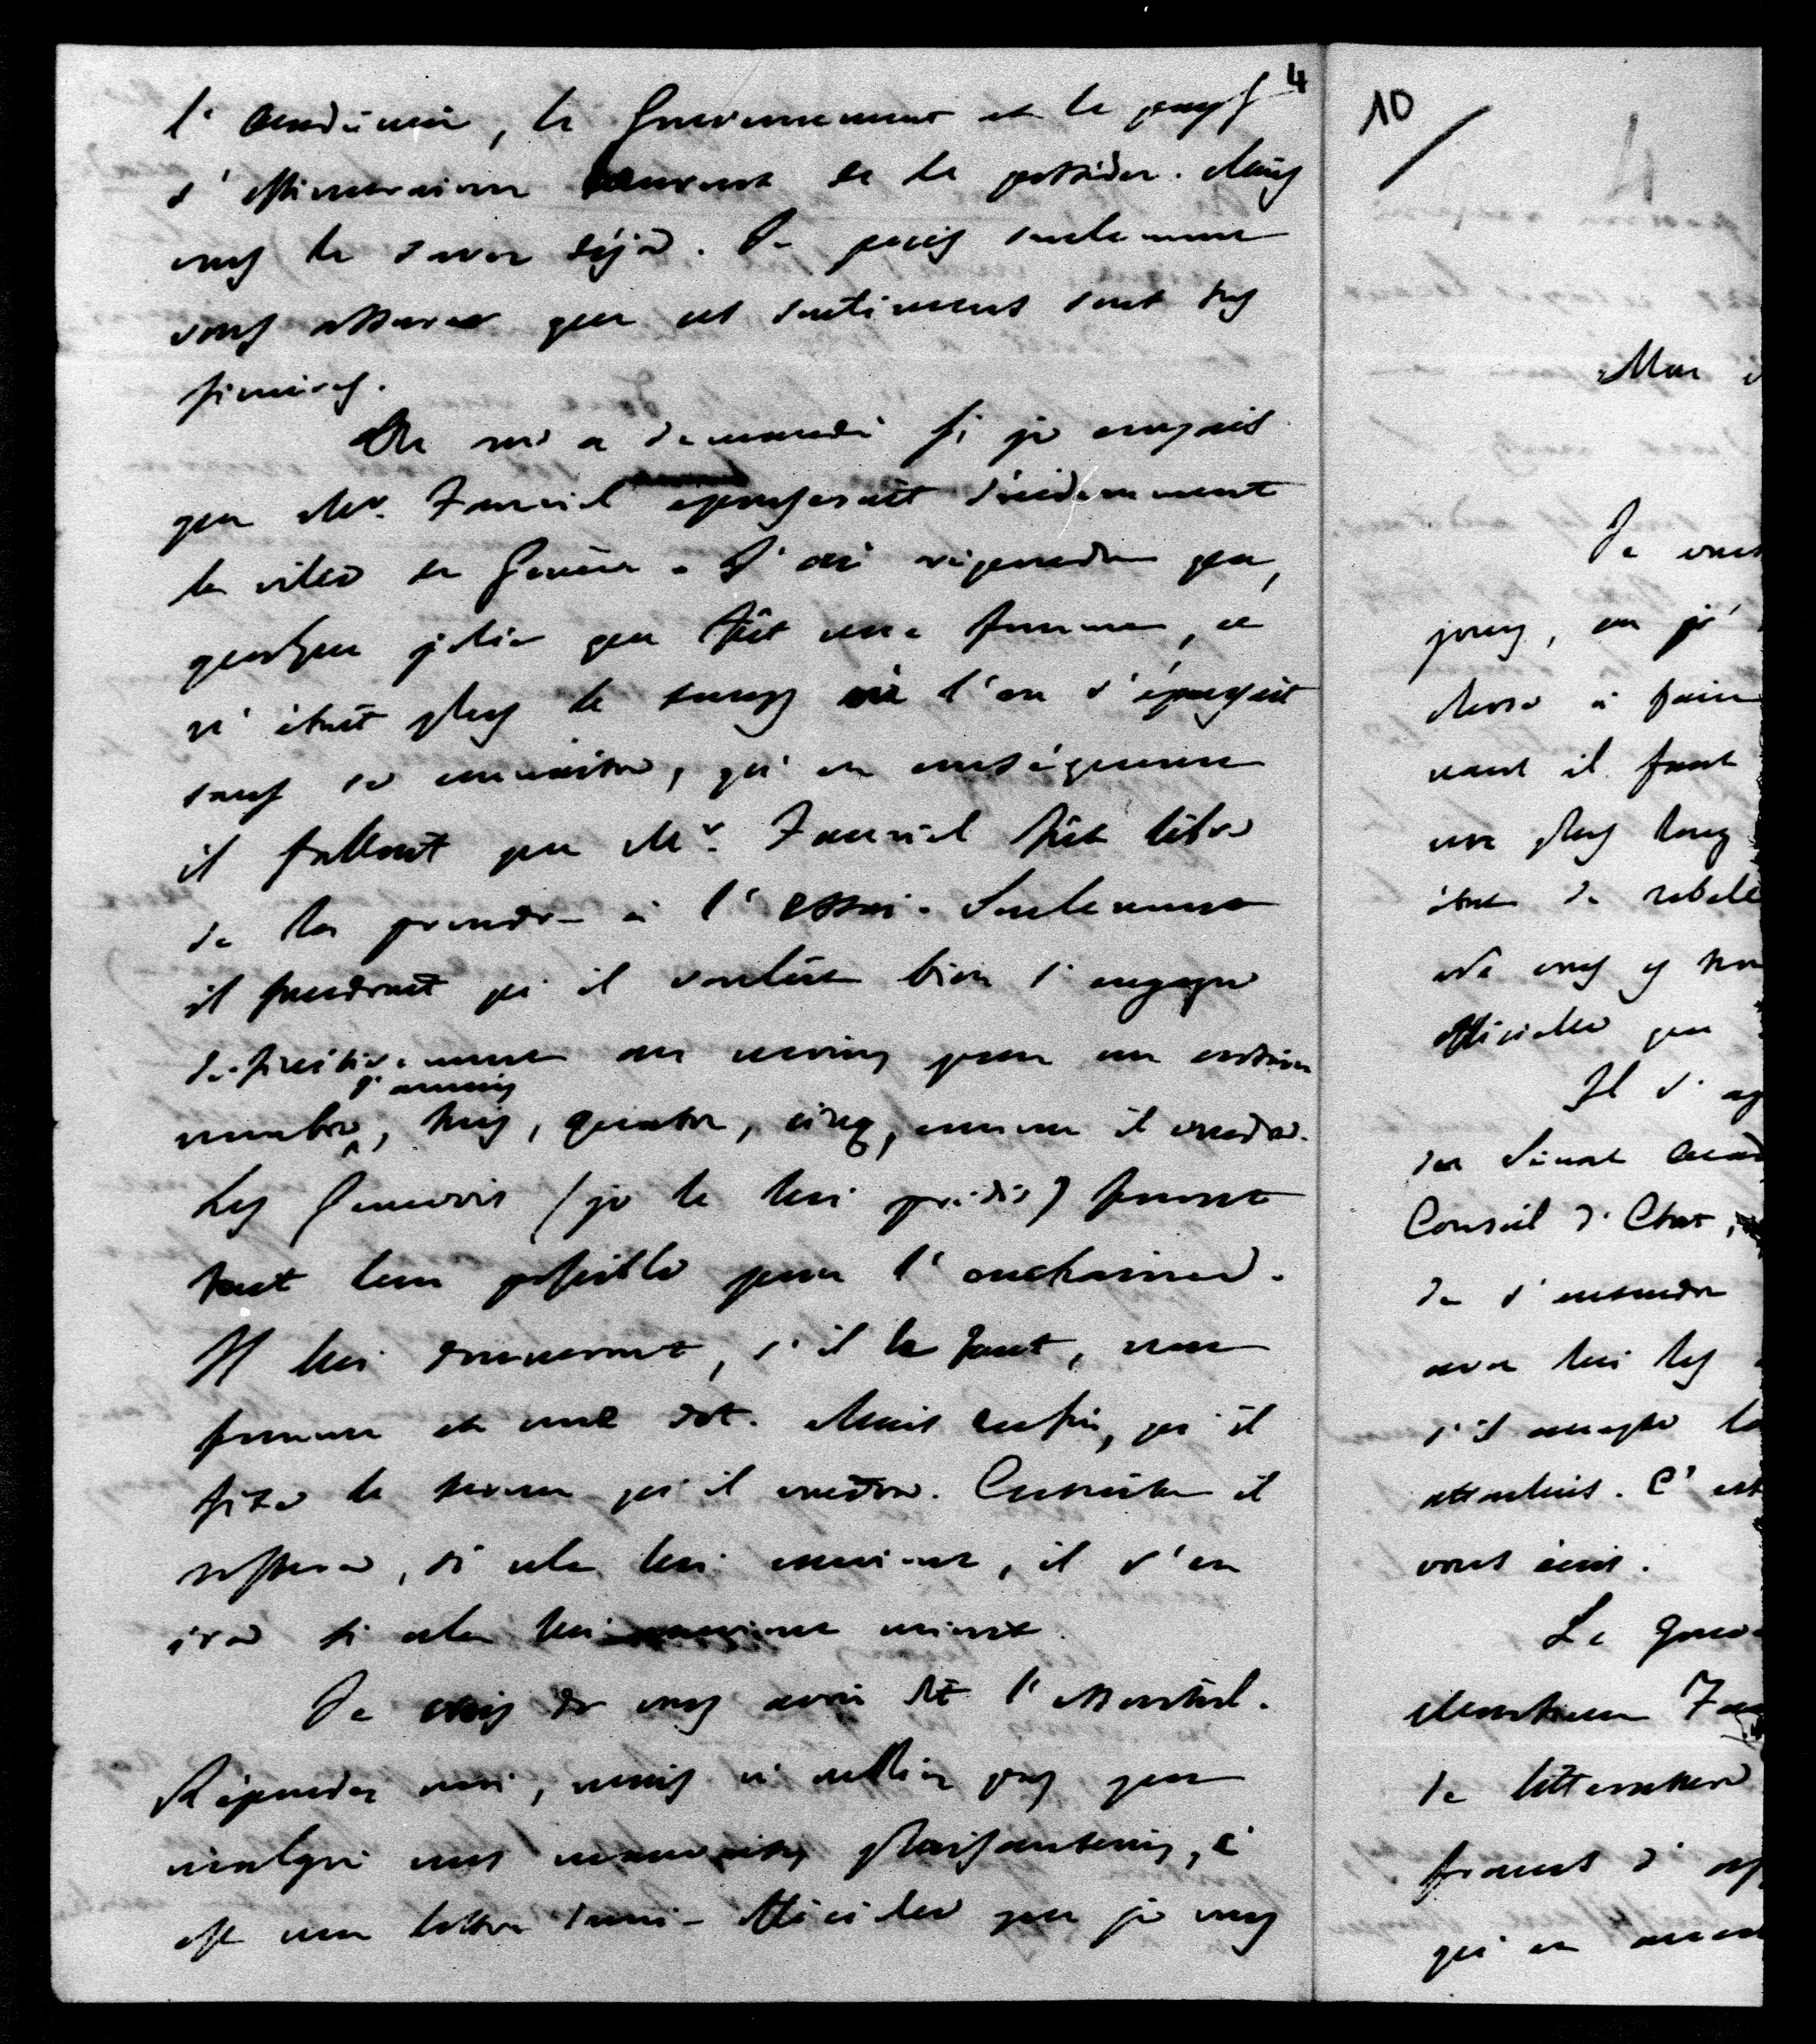 4
l'Académie, le Gouvernement et le pays
s'estimeraient heureux de le posséder. Mais
vous le savez déjà. Je puis seulement
vous assurer que ces sentiments sont très
sincères.
On m'a demandé si je croyais
que Mr. Fauriel épouserait décidemment
la ville de Genève. J'ai répondu que,
quelque jolie que fût une femme, ce
n'était plus le temps où l'on s'épousait
sans se connaître, qu'en conséquence
il fallait que Mr. Fauriel fût libre
de la prendre à l'essai. Seulement
il faudrait qu'il voulût bien s'engager
définitivement au moins pour un certain
nombre d'années, trois, quatre, cinq, comme il voudra.
Les Genevois (je le lui prédis) feront
tout leur possible pour l'enchainer.
Il lui donneront, s'il le faut, une
femme et une dot. Mais enfin, qu'il
fixe le terme qu'il voudra. Ensuite il
restera, si cela lui convient, il s'en
ira si cela lui convient mieux.
Je crois vous avoir dit l'essentiel.
Répondez moi, mais n'oubliez pas que
malgré mes mauvaises plaisanteries, c'
est une lettre demi-officielle que je vous
10
Mon
Je vous
jours, où j'
à faire
vant il faut
une plus long
état de rebelle
officielle que
Il s'ag
du Sénat Acad
Conseil d'Etat,
de s'entendre
avec lui les
s'il accepte la
attentions. C'est
vous écris.
Le Gouv
Monsieur Fau
de littérature
francs d'ap
qui en